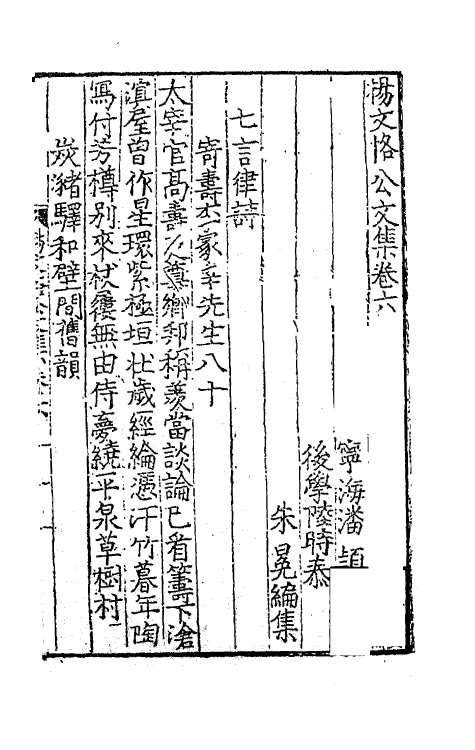 楊文恪公文集卷六
寧海潘頡
後學陸時泰
朱冕編集
七言律詩
寄壽冢宰先生八十
太宰官高壽又尊鄉邦稱羨當談論已看籌下滄
溟屋曾作星環紫極垣壯歲經綸憑汗竹暮年陶
寫付芳樽別來杖屨無由侍夢繞平泉草樹村
炭瀦驛和壁間舊韻